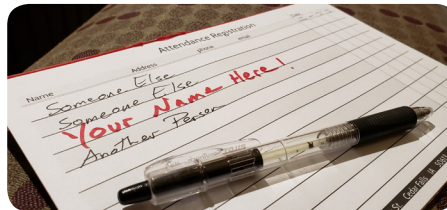 Attendance Registration
Name Address phone email Date
Someone Else
Someone Else
Your Name Here!
Another Person
St. Cedar Falls IA